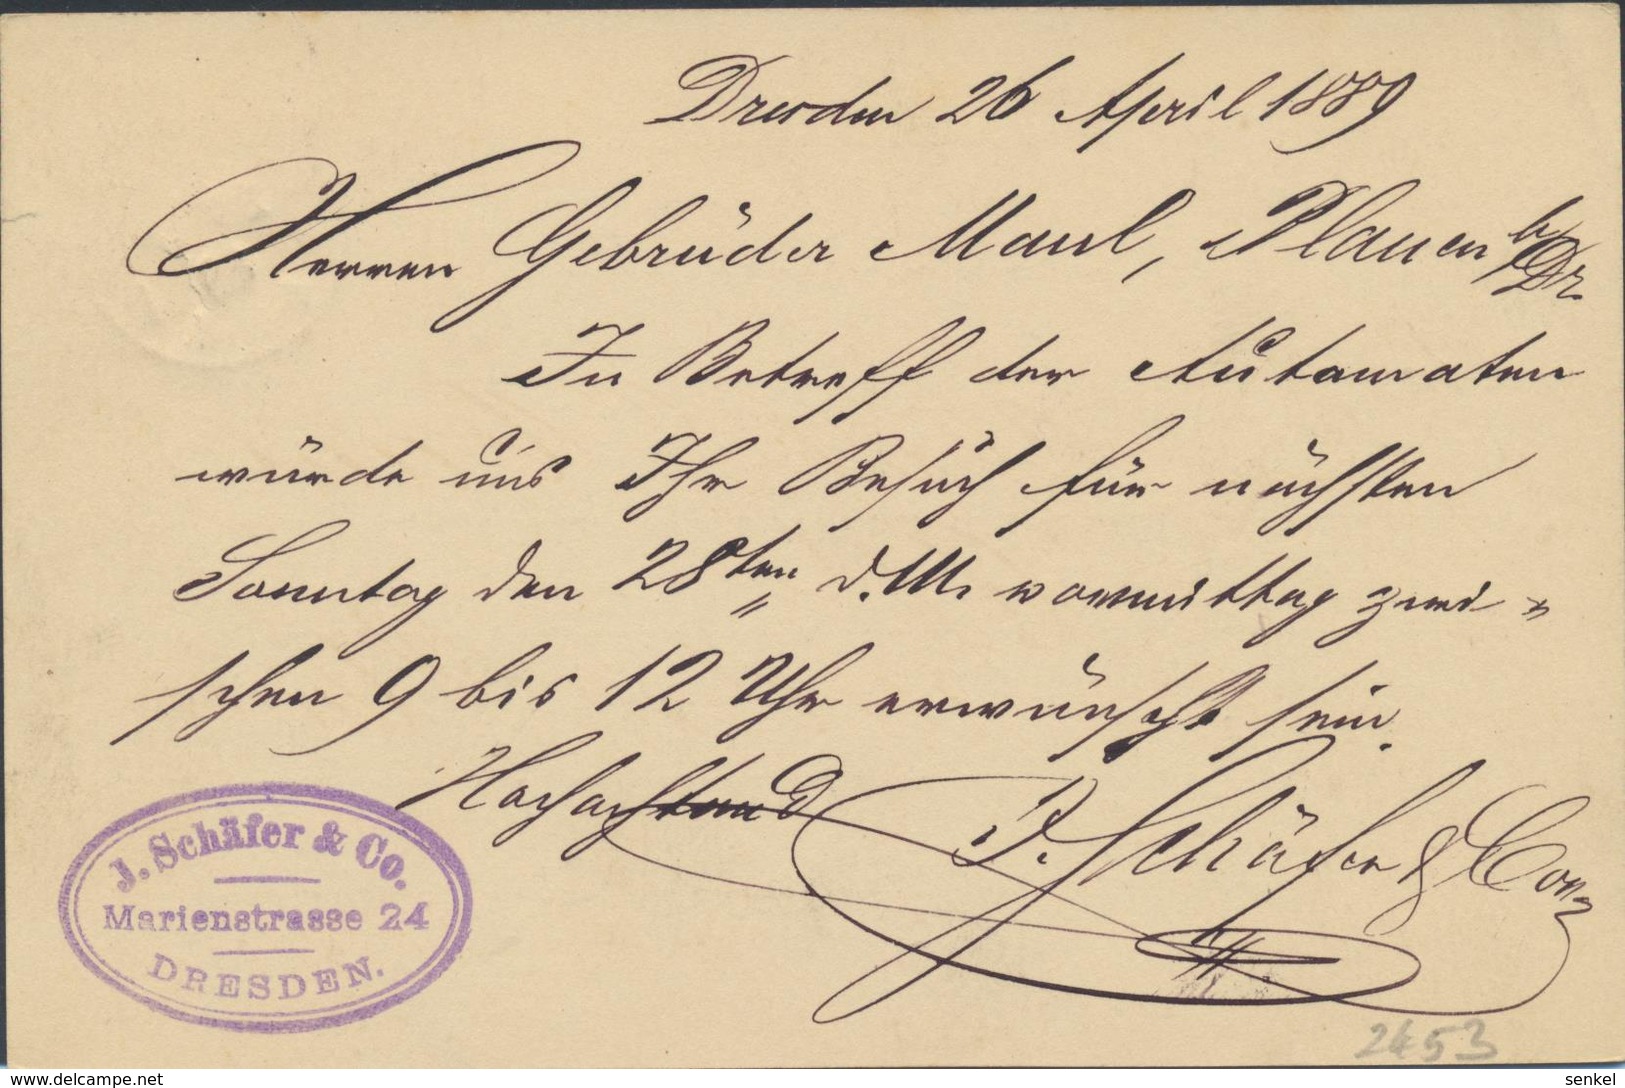 Dresden 26 April 1889
Herren Gebrüder Maul, Plauen b/Dr.
In Betreff der Automaten
würde uns Ihr Besuch für nächsten
Sonntag den 28ten d. M. vormittag zwi-
schen 9 bis 12 Uhr erwünscht sein.
Hochachtend
J. Schäfer & Com
J. Schäfer & Co.
Marienstrasse 24
DRESDEN.
2453
www.delcampe.net
senkel